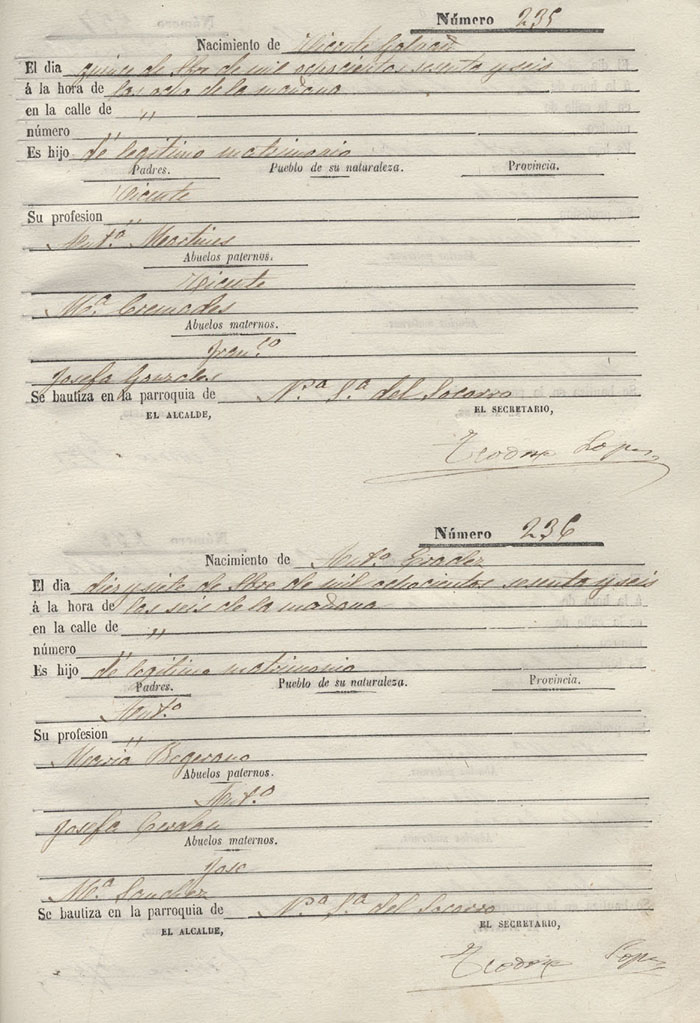 Número 235
Nacimiento de Vicente Galvañ
El dia quince de 8bre de mil ochocientos sesenta y seis
á la hora de las ocho de la mañana
en la calle de "
número
Es hijo de legitimo matrimonio
Padres. Pueblo de su naturaleza. Provincia.
Vicente
Su profesion "
Ant.ª Martines
Abuelos paternos.
Vicente
M.ª Cremades
Abuelos maternos.
Fran.co
Josefa Gonzales
Se bautiza en la parroquia de N.ª S.ª del Socorro
EL ALCALDE, EL SECRETARIO,
Lopez
Número 236
Nacimiento de Ant.º
El dia diez y siete de 8bre de mil ochocientos sesenta y seis
á la hora de las seis de la mañana
en la calle de "
número
Es hijo de legitimo matrimonio
Padres. Pueblo de su naturaleza. Provincia.
Ant.º
Su profesion "
Maria
Abuelos paternos.
Ant.º
Josefa Cerdan
Abuelos maternos.
Jose
M.ª Sanchez
Se bautiza en la parroquia de N.ª S.ª del Socorro
EL ALCALDE, EL SECRETARIO,
Lopez